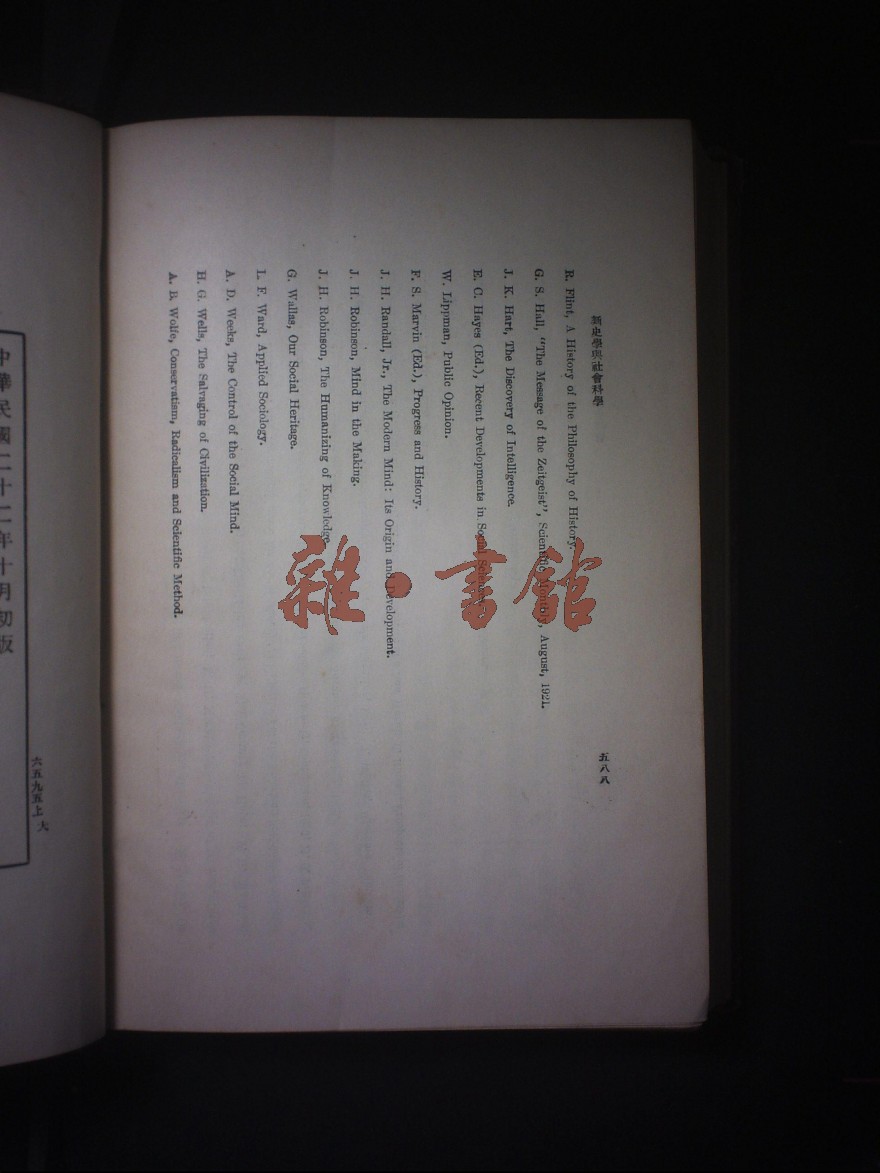 新史學與社會科學
R. Flint, A History of the Philosophy of History.
G. S. Hall, "The Message of the Zeitgeist", Scientific Monthly, August, 1921.
J. K. Hart, The Discovery of Intelligence.
E. C. Hayes (Ed.), Recent Developments in Social Sciences.
W. Lippman, Public Opinion.
F. S. Marvin (Ed.), Progress and History.
J. H. Randall, Jr., The Modern Mind: Its Origin and Development.
J. H. Robinson, Mind in the Making.
J. H. Robinson, The Humanizing of Knowledge.
G. Wallas, Our Social Heritage.
L. F. Ward, Applied Sociology.
A. D. Weeks, The Control of the Social Mind.
H. G. Wells, The Salvaging of Civilization.
A. B. Wolfe, Conservatism, Radicalism and Scientific Method.
五八八
雜·書館
中華民國二十二年十月初版
六五九五上 大